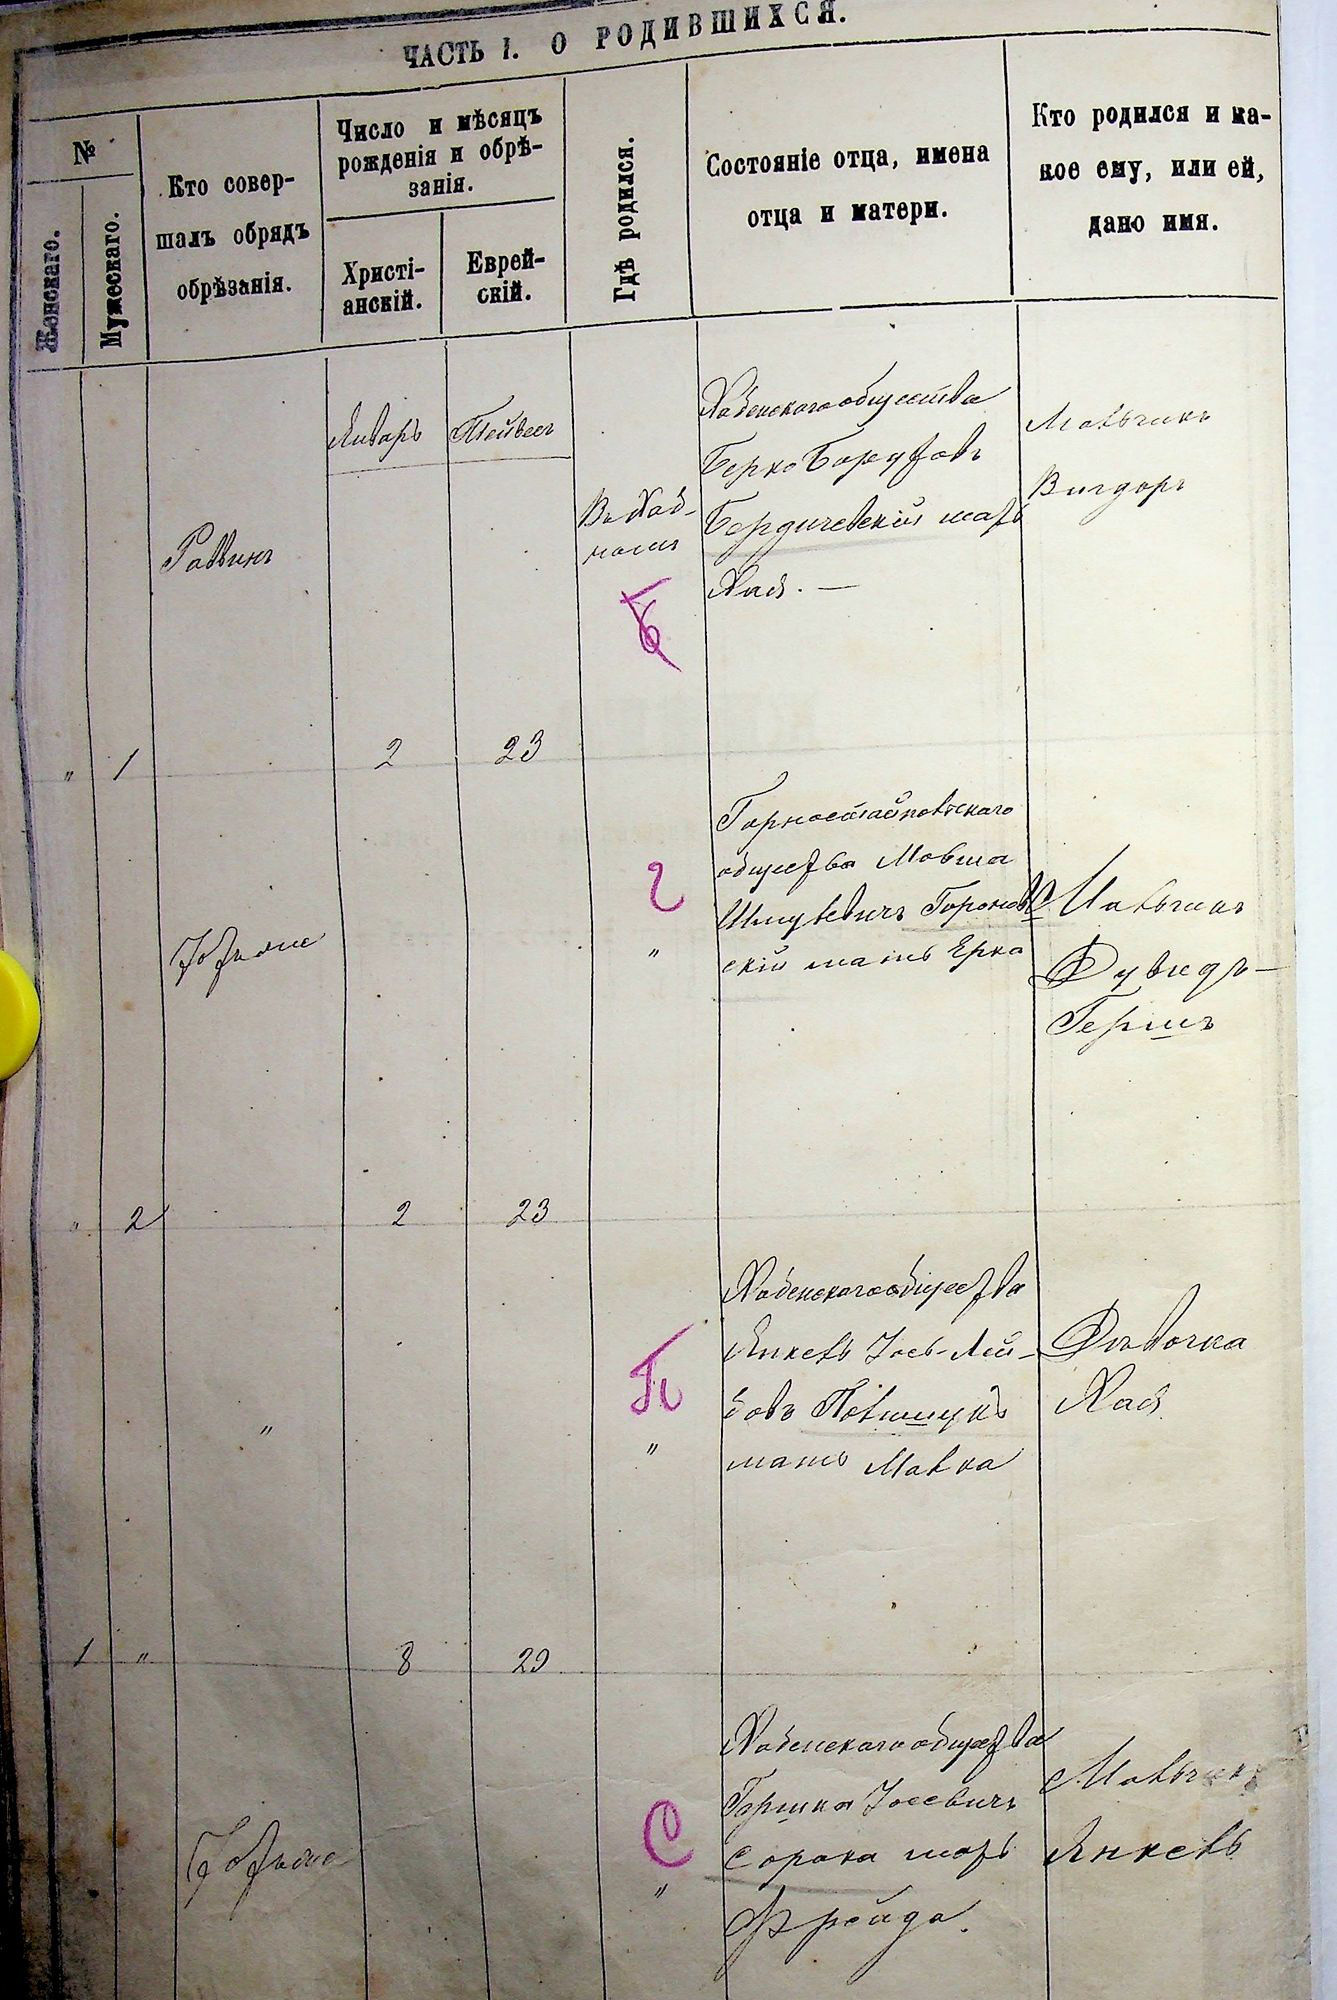 ЧАСТЬ I. О РОДИВШИХСЯ.
№
Женскаго.
Мужескаго.
Кто совер-
шалъ обрядъ
обрѣзанія.
Число и мѣсяцъ
рожденія и обрѣ-
занія.
Христі-
анскій.
Еврей-
скій.
Гдѣ родился.
Состояніе отца, имена
отца и матери.
Кто родился и ка-
кое ему, или ей,
дано имя.
"
1
Раввинъ
Январь
2
Тейвесъ
23
Б
Хабенскаго общества
Берко Боруховъ
Бердичевскій мать
Хая. —
Мальчикъ
Вигдоръ
"
2
Тотъ же
2
23
Г
"
Горностайпольскаго
общества Мовша
Шмулевичъ
скій мать Ерка
Мальчикъ
Дувидъ-
Гершъ
1
"
"
8
29
П
"
Хабенскаго общества
Янкель Іось-Лей-
бовъ
мать Малка
Дѣвочка
Хая
Тотъ же
С
"
Хабенскаго общества
Гершко Іосевичъ
Сорока мать
Фрейда.
Мальчикъ
Янкель